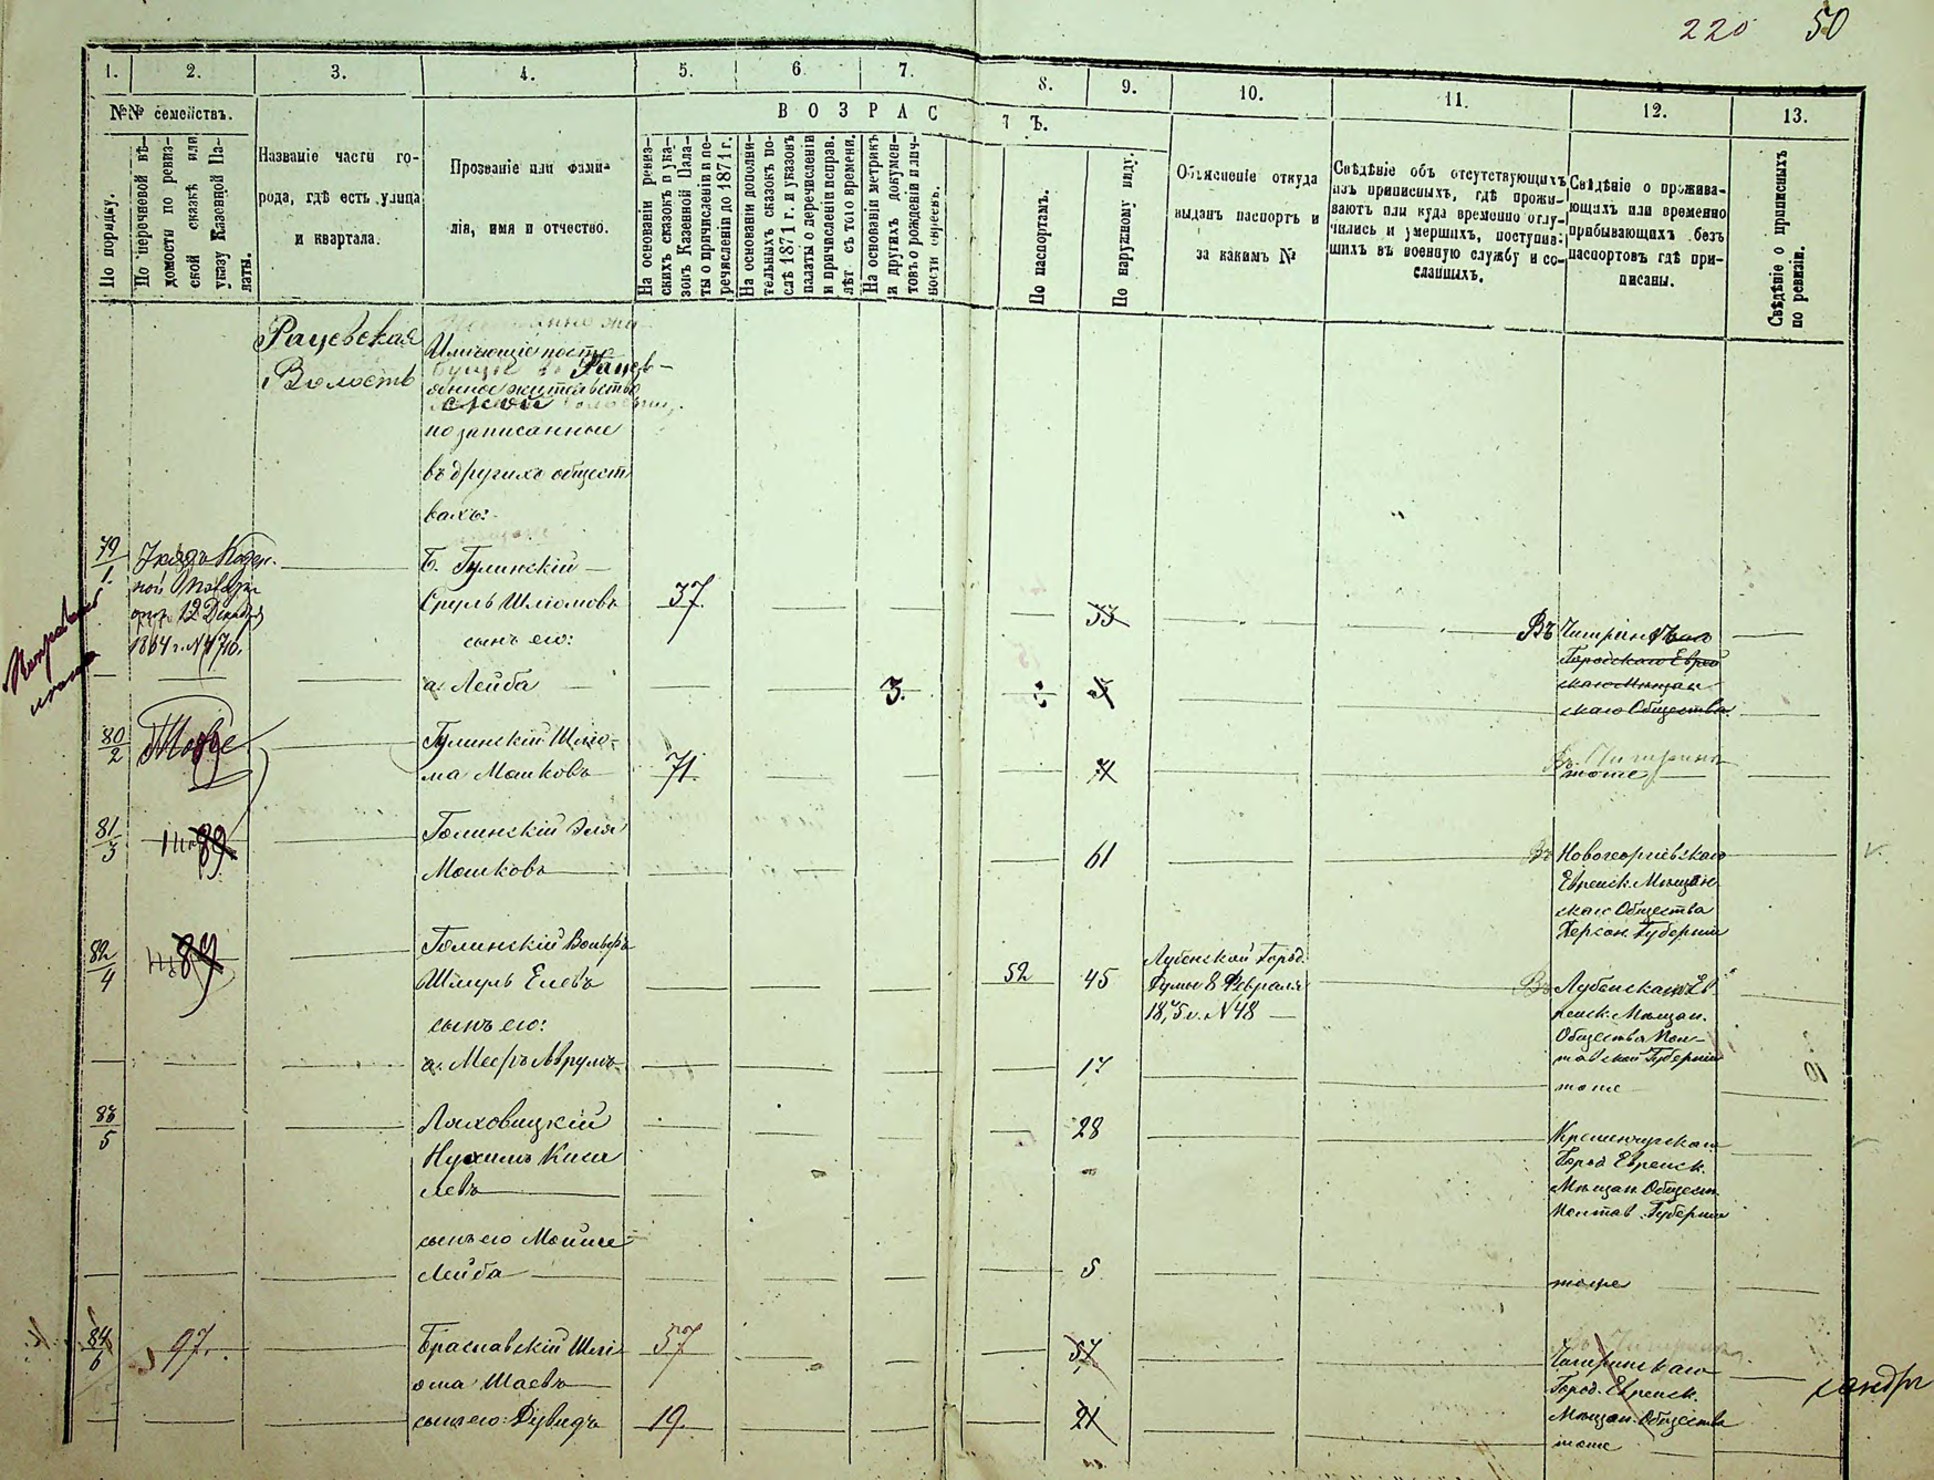 220 50
1. 2. 3. 4. 5. 6 7. 8. 9. 10. 11. 12. 13.
№№ семействъ.
По порядку.
По перечневой вѣ-
домости по ревиз-
ской сказкѣ или
указу Казенной Па-
латы.
Названіе части го-
рода, гдѣ есть улица
и квартала.
Прозваніе или фами-
лія, имя и отчество.
ВОЗРАС
ТЪ.
На основаніи ревиз-
скихъ сказокъ и ука-
зовъ Казенной Пала-
ты о причисленіи и пе-
речисленіи до 1871 г.
На основаніи дополни-
тельныхъ сказокъ по-
слѣ 1871 г. и указовъ
палаты о перечисленіи
и причисленіи исправ.
лѣт съ того времени.
На основаніи метрикъ
и другихъ докумен-
товъ о рожденіи и лич-
ности евреевъ.
По паспортамъ.
По наружному виду.
Объясненіе откуда
выданъ паспортъ и
за какимъ №
Свѣдѣніе объ отсутствующихъ
изъ приписныхъ, гдѣ прожи-
ваютъ или куда временно отлу-
чились и умершихъ, поступив-
шихъ въ военную службу и со-
сланныхъ.
Свѣдѣніе о прожива-
ющихъ или временно
прибывающихъ безъ
паспортовъ гдѣ при-
писаны.
Свѣдѣніе о приписныхъ
по ревизіи.
Рацевская
Волость
Имѣющіе посто
янное жительство
Рацев-
ской
но записанные
въ другихъ общест
вахъ:
79/1. Указъ Казен-
ной Палаты
отъ 12 Декабря
1864 г. №
Б. Гулинскій
Сруль Шліомовъ 37. 33 Въ Чигрин
сынъ его:
Городскаго Еврей
а. Лейба 3. 5 скаго Мѣщан
скаго Общества
80/2 Тоже Гулинскій Шліо-
ма Мошковъ 71. 71 тоже
81/3 89 Голинскій Эля
Мошковъ 61 Новогеоргіевскаго
Еврейск. Мѣщан
скаго Общества
Херсон. Губерніи
82/4 89 Голинскій Вольфъ
Шмуль Елевъ 52 45 Лубенской Город.
Думы 8 Февраля
1875 г. №48
Въ Лубенскаго Ев-
рейск. Мѣщан.
Общества Пол-
тавской Губерніи
сынъ его:
а. Мееръ Аврумъ 17 тоже
83/5 Ляховицкій
Нухимъ Киси
левъ 28 Кременчугскаго
Город Еврейск.
Мѣщан. Общест.
Полтав. Губерніи
сынъ его Мойше
Лейба 5 тоже
84/6 97. Браславскій Шлі
ома Шаевъ 57 57 Чигринскаго
Город. Еврейск.
Мѣщан. Общества
сынъ его: Дувидъ 19. 21 тоже